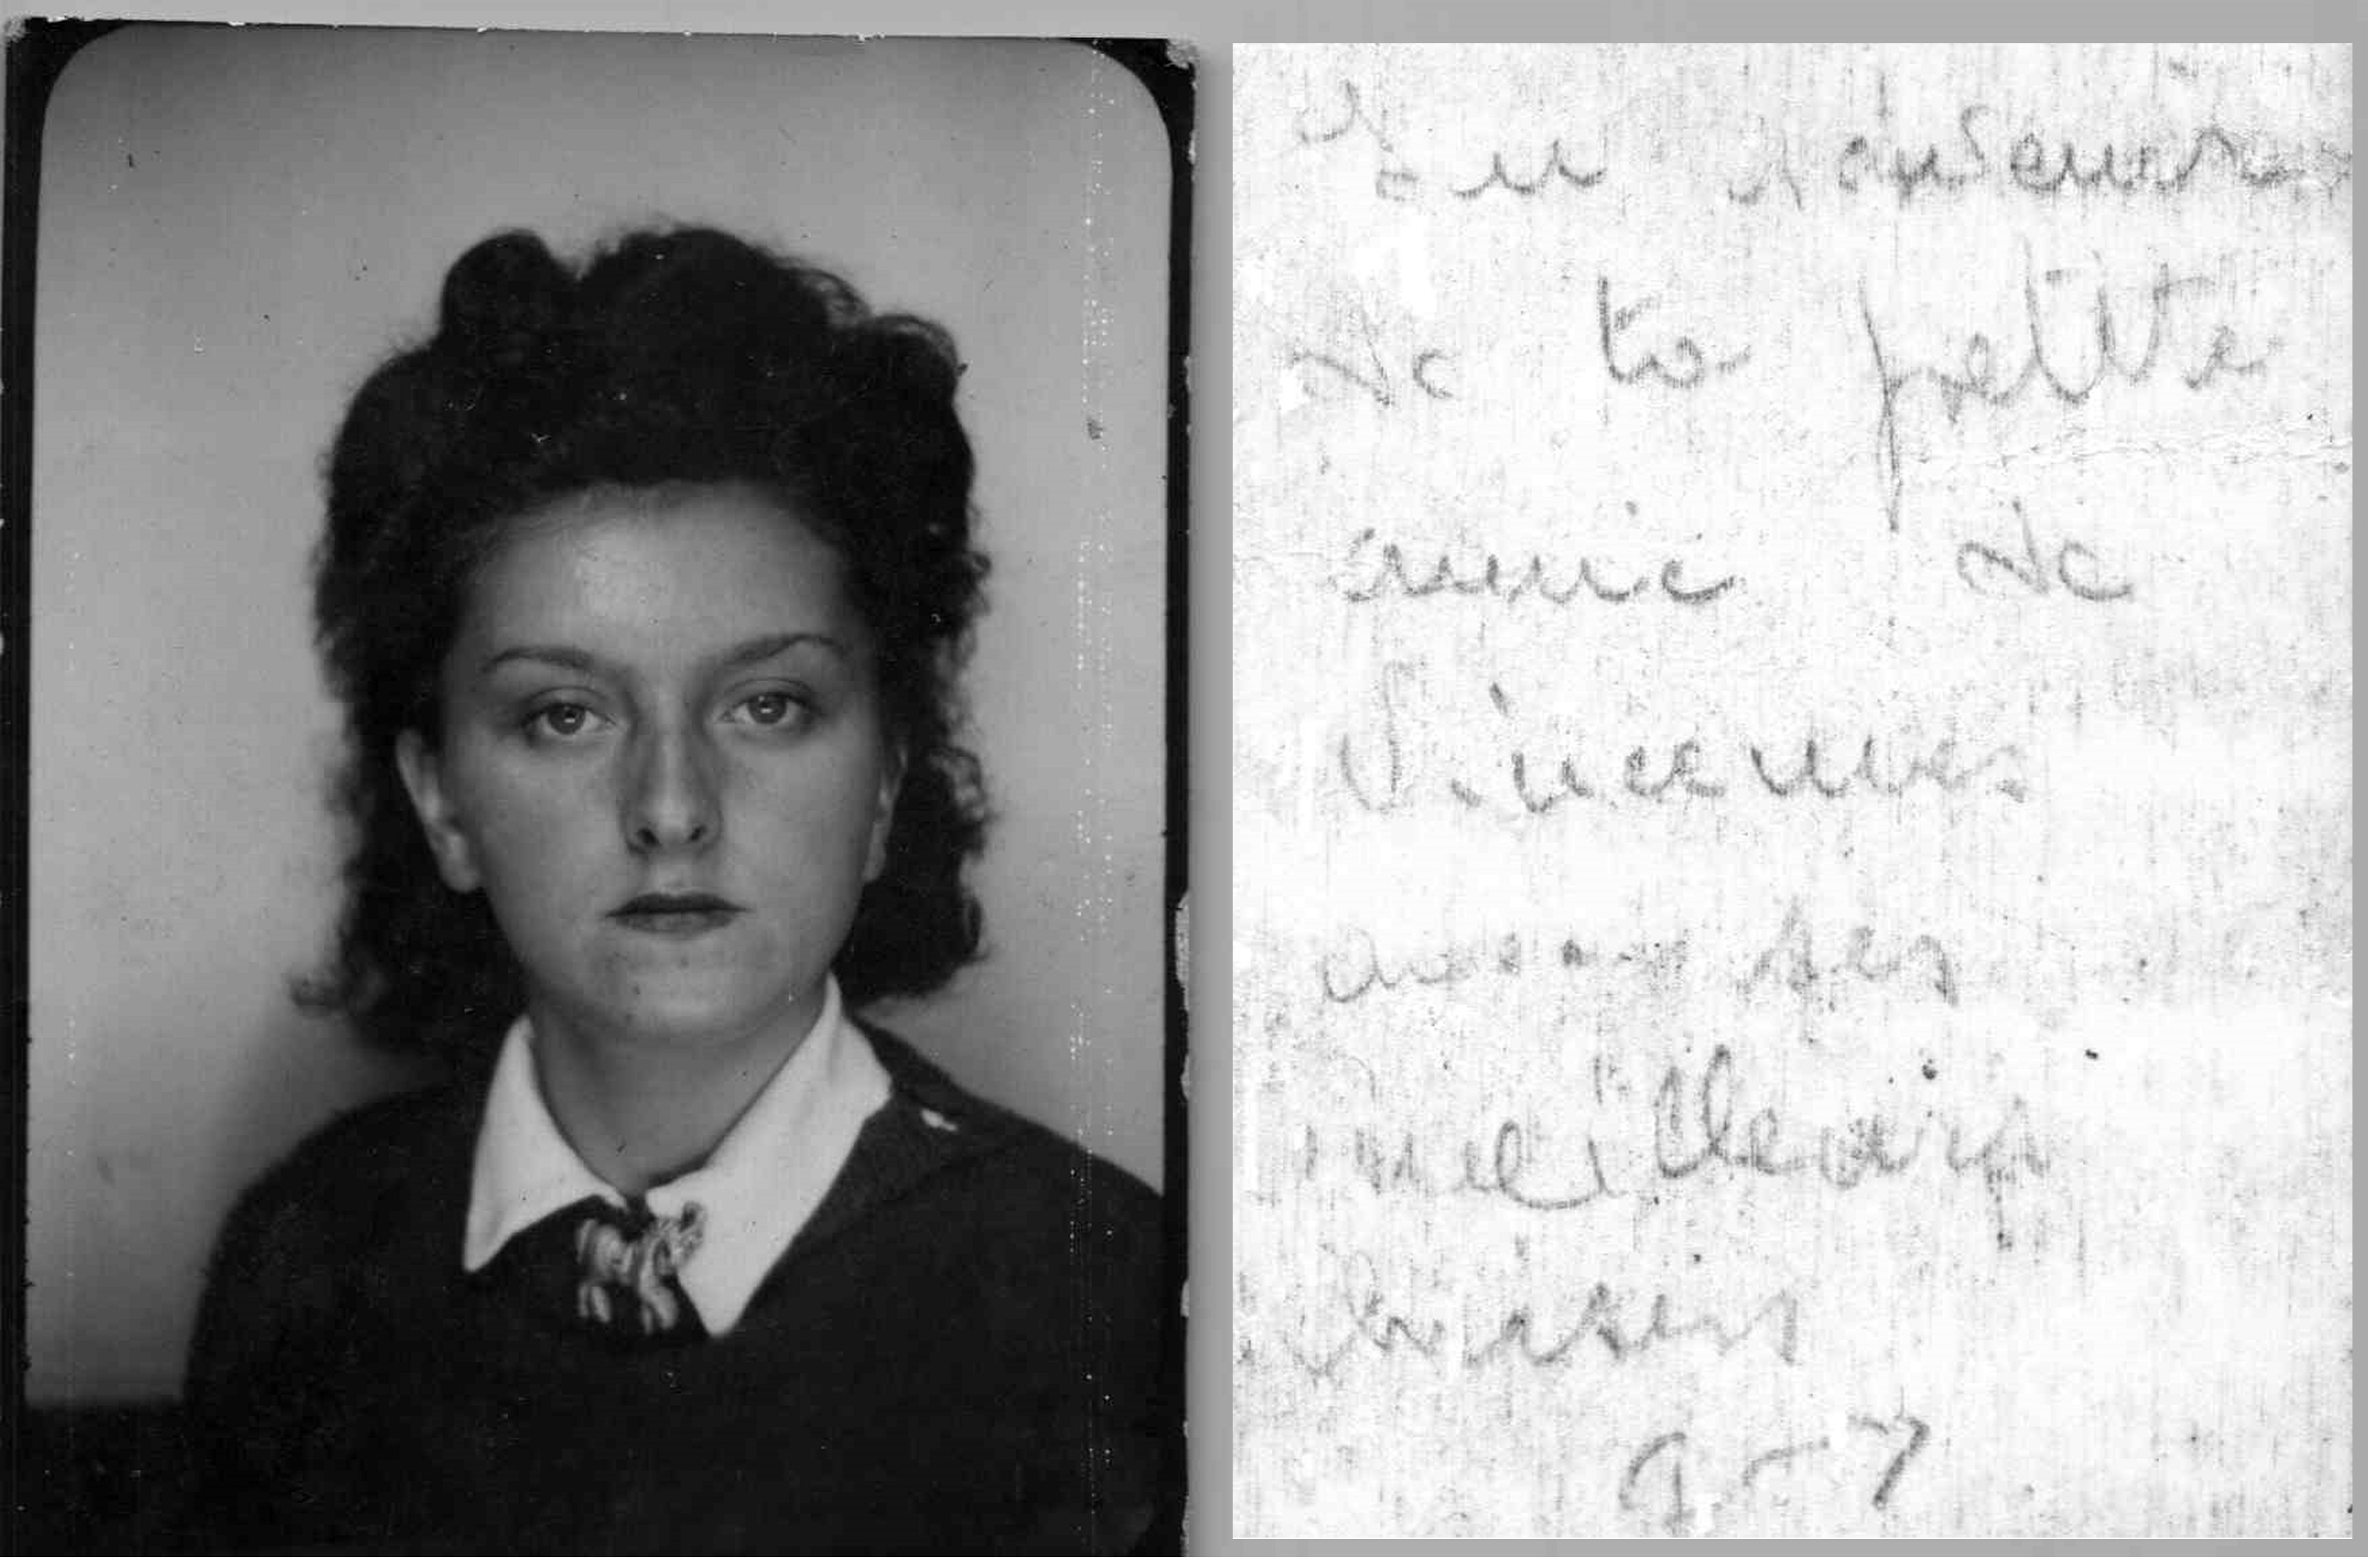 En souvenir
de ta petite
amie de
Vincennes
avec ses
meilleurs
baisers